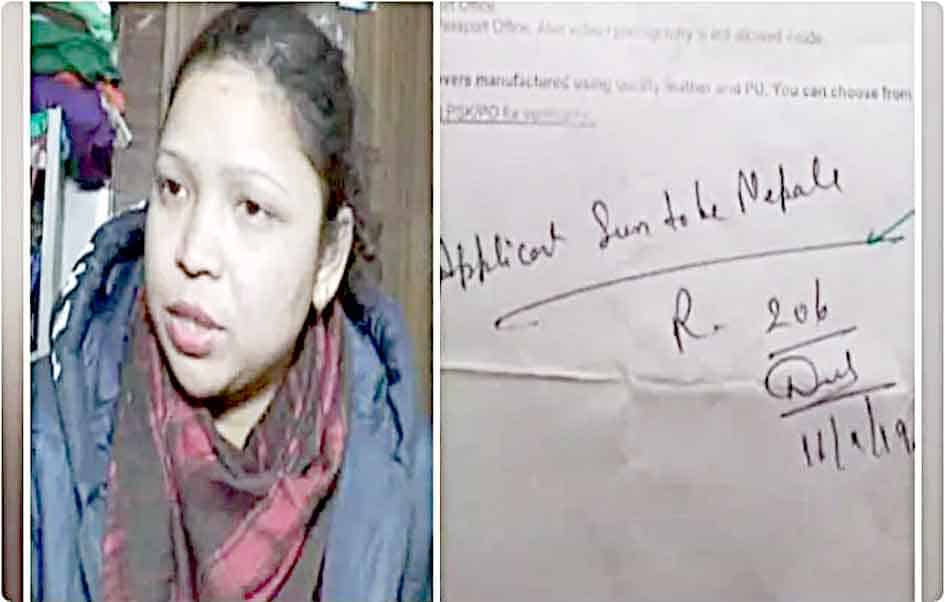 rt Office.
Passport Office. Also video / photography is not allowed inside.
overs manufactured using quality leather and PU. You can choose from
PSK/PO for
Applicant Seen to be Nepale
R. 206
11/9/19